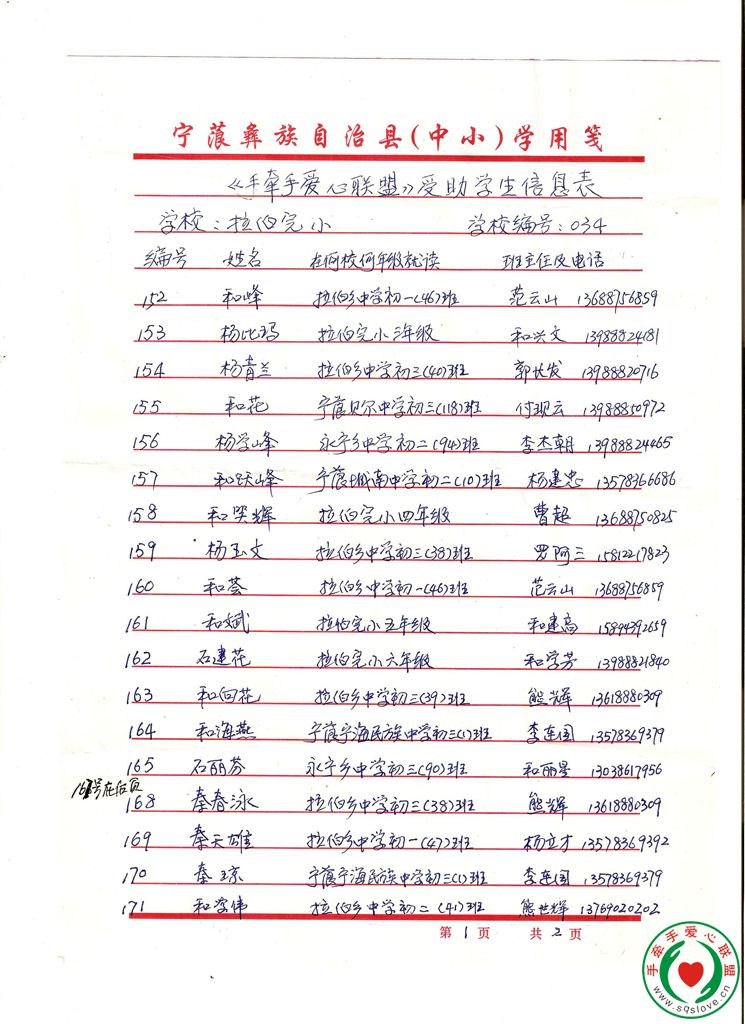 宁蒗彝族自治县(中小)学用笺
《手牵手爱心联盟》受助学生信息表
学校：拉伯完小 学校编号：034
编号 姓名 在何校何年级就读 班主任及电话
152 和峰 拉伯乡中学初一(46)班 范云山 13688756859
153 杨比玛 拉伯完小三年级 和兴文 13988824181
154 杨青兰 拉伯乡中学初三(40)班 郭长发 13988820716
155 和花 宁蒗贝尔中学初三(118)班 付现云 13988850972
156 杨学峰 永宁乡中学初二(94)班 李杰朝 13988824465
157 和跃峰 宁蒗城南中学初二(10)班 杨建忠 13578366686
158 和哭辉 拉伯完小四年级 曹超 13688750825
159 杨玉文 拉伯乡中学初三(38)班 罗阿三 15812217823
160 和荟 拉伯乡中学初一(46)班 范云山 13688756859
161 和斌 拉伯完小五年级 和建高 15894392659
162 石建花 拉伯完小六年级 和学芳 13988821840
163 和向花 拉伯乡中学初三(39)班 熊辉 13618880309
164 和海燕 宁蒗宁海民族中学初三(1)班 李连国 13578369379
165 石丽芬 永宁乡中学初三(90)班 和丽星 13038617956
167号在后页
168 秦春泳 拉伯乡中学初三(38)班 熊辉 13618880309
169 秦天雄 拉伯乡中学初一(47)班 杨立才 13578369392
170 秦琼 宁蒗宁海民族中学初三(1)班 李连国 13578369379
171 和学伟 拉伯乡中学初二(41)班 熊世辉 13769020202
第1页 共2页
手牵手爱心联盟
www.sqslove.cn